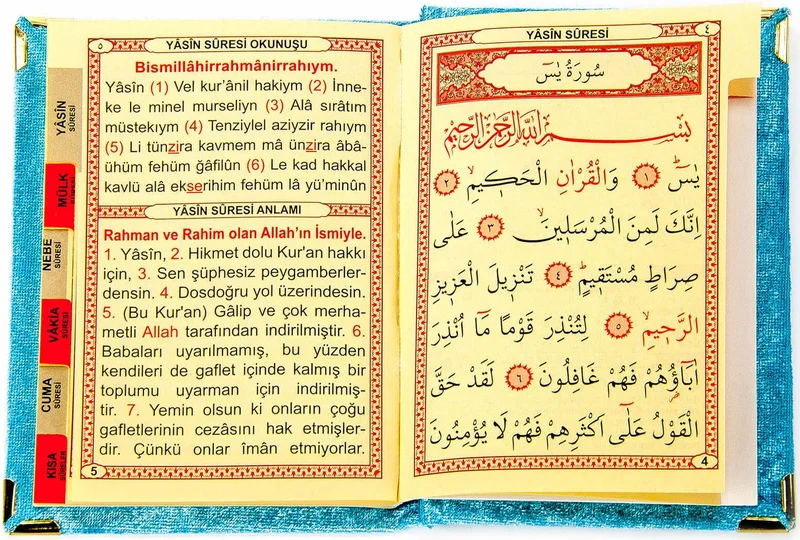 ٥
YÂSİN SÛRESİ OKUNUŞU
Bismillâhirrahmânirrahıym.
Yâsîn (1) Vel kur’ânil hakiym (2) İnne-
ke le minel murseliyn (3) Alâ sırâtım
müstekıym (4) Tenziylel aziyzir rahıym
(5) Li tünzira kavmem mâ ünzira âbâ-
ühüm fehüm ğafilûn (6) Le kad hakkal
kavlü alâ ekserihim fehüm lâ yü’minûn
YÂSİN SÛRESİ ANLAMI
Rahman ve Rahim olan Allah’ın İsmiyle.
1. Yâsîn, 2. Hikmet dolu Kur'an hakkı
için, 3. Sen şüphesiz peygamberler-
densin. 4. Dosdoğru yol üzerindesin.
5. (Bu Kur'an) Gâlip ve çok merha-
metli Allah tarafından indirilmiştir. 6.
Babaları uyarılmamış, bu yüzden
kendileri de gaflet içinde kalmış bir
toplumu uyarman için indirilmiş-
tir. 7. Yemin olsun ki onların çoğu
gafletlerinin cezâsını hak etmişler-
dir. Çünkü onlar îmân etmiyorlar.
5
YÂSİN
SÛRESİ
MÜLK
NEBE
SÛRESİ
VÂKIA
SÛRESİ
CUMA
SÛRESİ
KISA
SÛRELER
YÂSİN SÛRESİ
٤
سُورَةُ يٰسٓ
بِسْمِ اللّٰهِ الرَّحْمٰنِ الرَّحِيمِ
يٰسٓ ۚ ١ وَالْقُرْاٰنِ الْحَكِيمِۙ ٢
اِنَّكَ لَمِنَ الْمُرْسَلِينَۙ ٣ عَلٰى
صِرَاطٍ مُسْتَقِيمٍۜ ٤ تَنْزِيلَ الْعَزِيزِ
الرَّحِيمِۙ ٥ لِتُنْذِرَ قَوْمًا مَٓا اُنْذِرَ
اٰبَٓاؤُ۬هُمْ فَهُمْ غَافِلُونَ ٦ لَقَدْ حَقَّ
الْقَوْلُ عَلٰٓى اَكْثَرِهِمْ فَهُمْ لَا يُؤْمِنُونَ
4